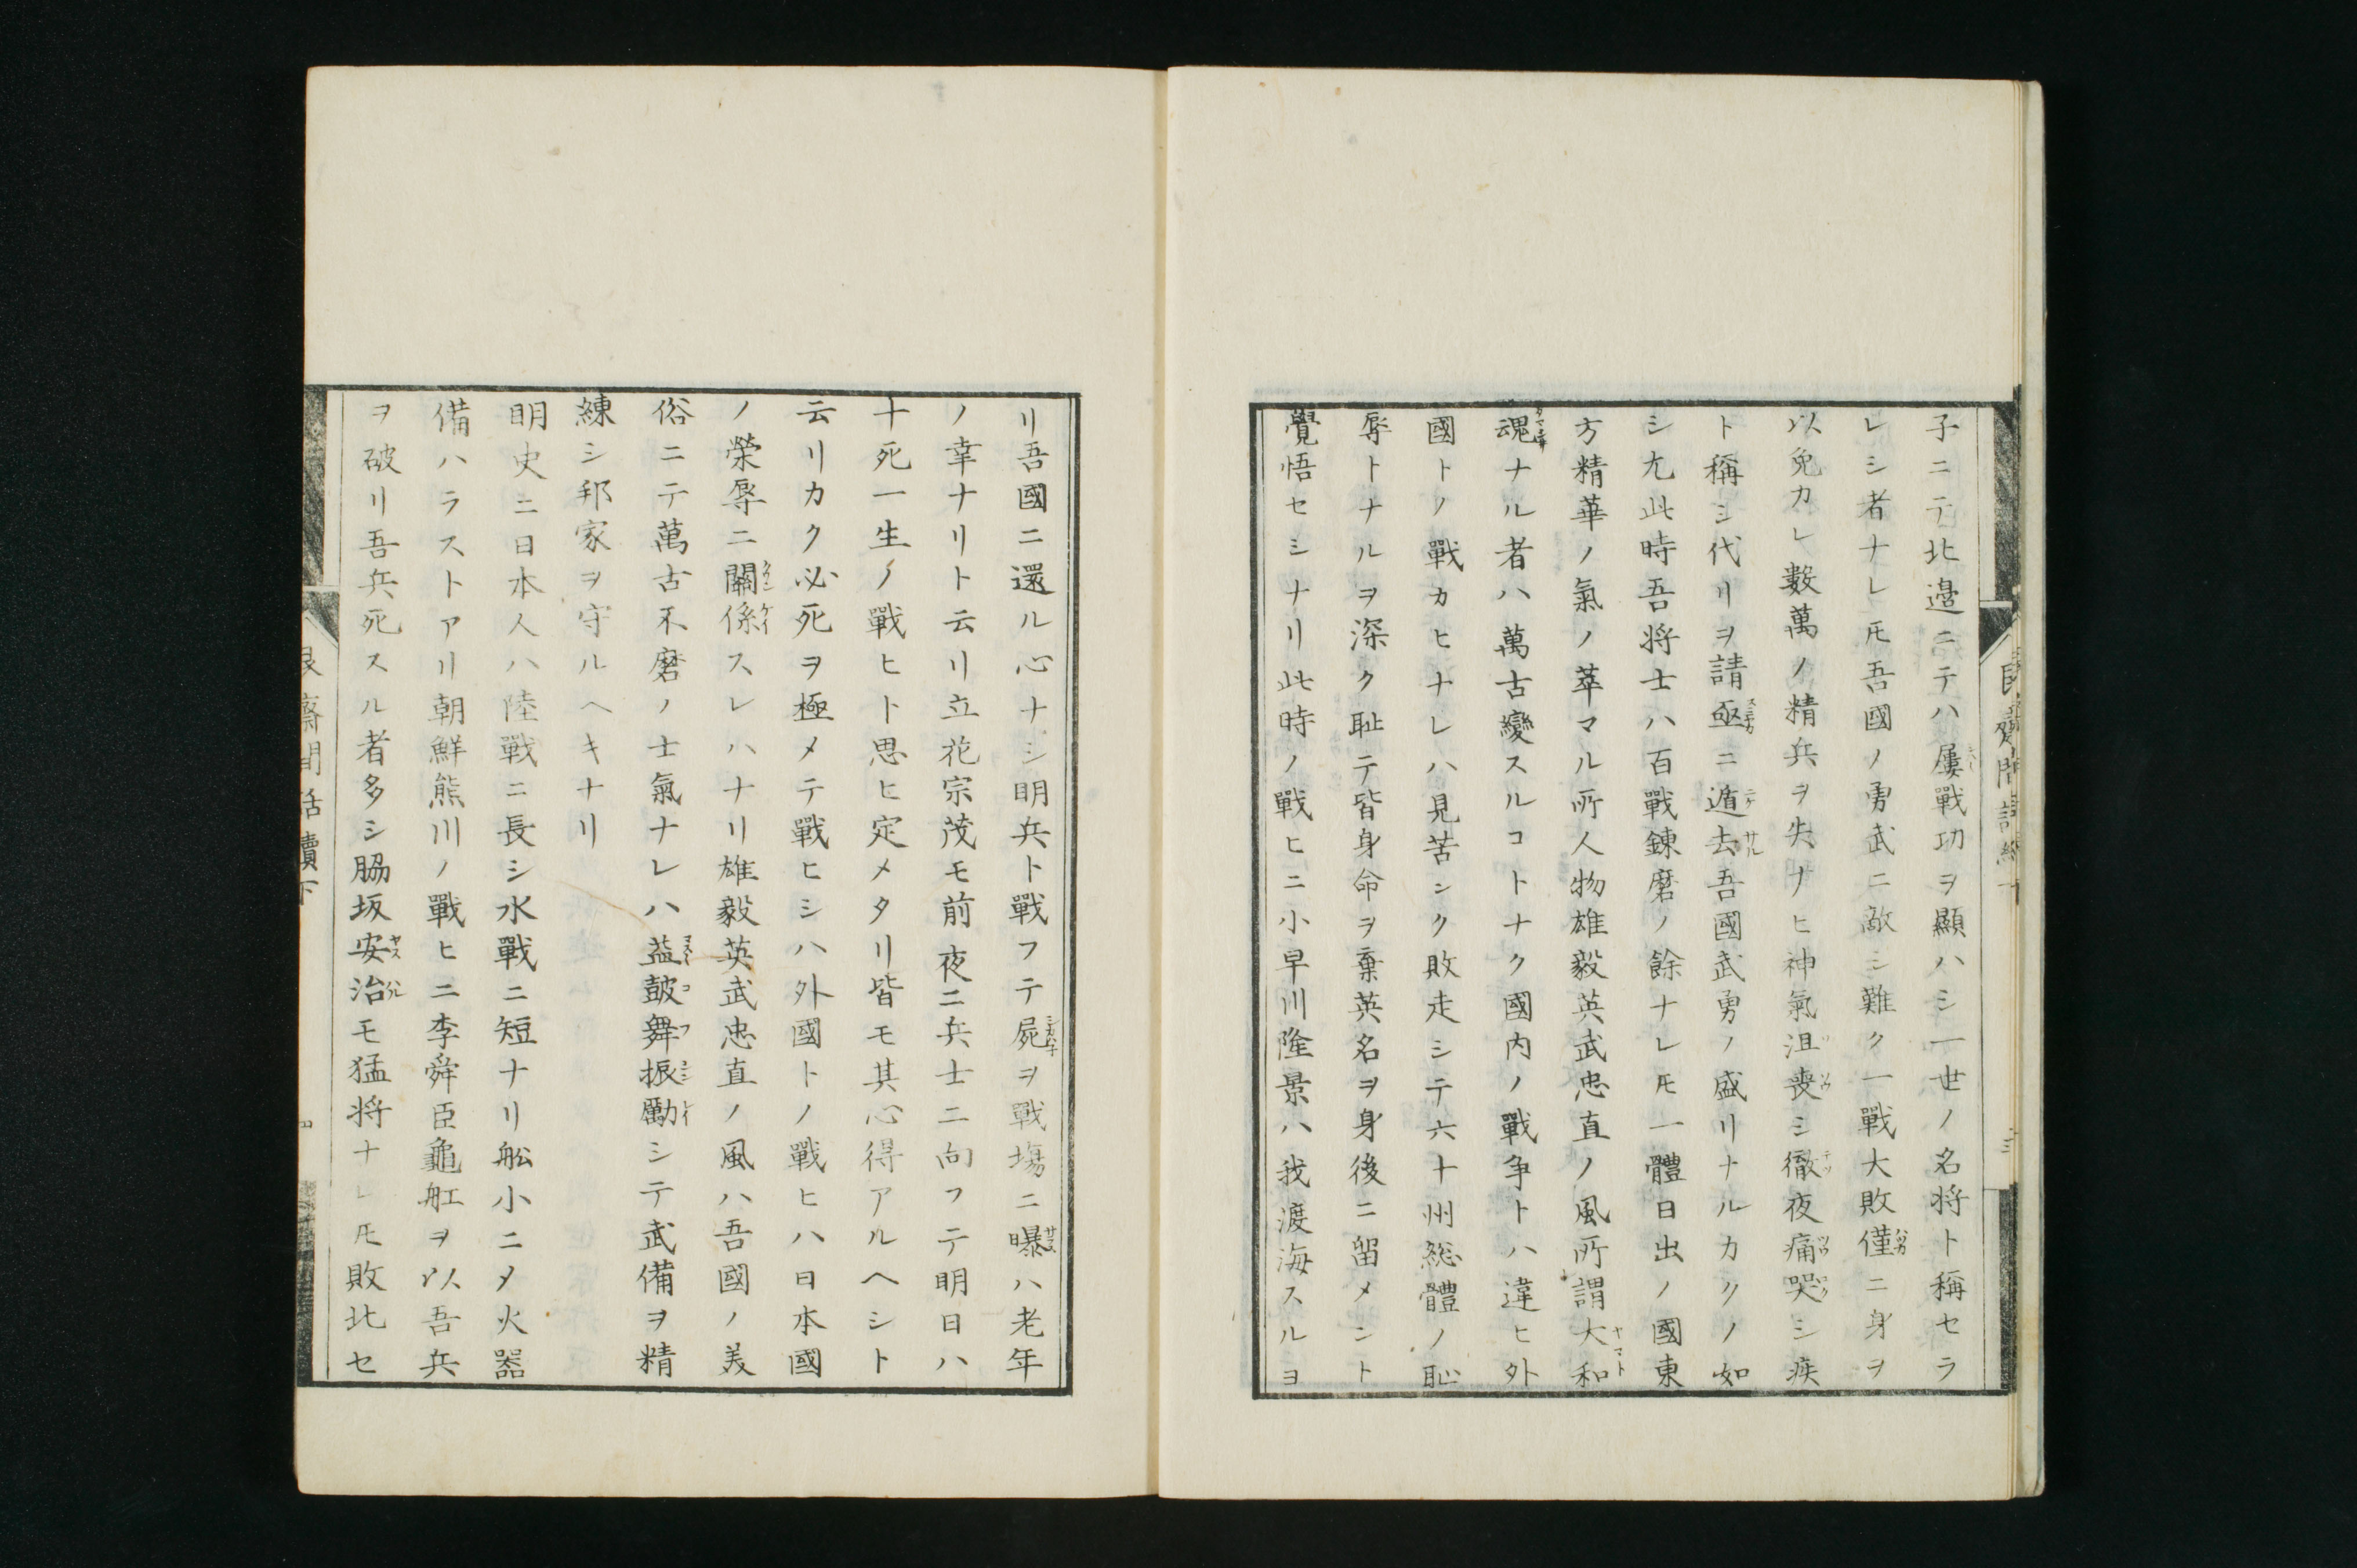 子ニテ北邉ニテハ屢戰功ヲ顯ハシ一世ノ名将ト稱セラ
レシ者ナレ𪜈吾國ノ勇武ニ敵シ難ク一戰大敗僅ニ身ヲ
以免カレ數萬ノ精兵ヲ失ナヒ神氣沮喪シ徹夜痛哭シ疾
ト稱シ代リヲ請亟ニ遁去吾國武勇ノ盛リナルカクノ如
シ尤此時吾将士ハ百戰鍊磨ノ餘ナレ𪜈一體日出ノ國東
方精華ノ氣ノ萃マル所人物雄毅英武忠直ノ風所謂大和
魂ナル者ハ萬古變スルコトナク國内ノ戰争トハ違ヒ外
國トノ戰カヒナレハ見苦シク敗走シテ六十州総體ノ恥
辱トナルヲ深ク耻テ皆身命ヲ棄英名ヲ身後ニ留メント
覺悟セシナリ此時ノ戰ヒニ小早川隆景ハ我渡海スルヨ
リ吾國ニ還ル心ナシ明兵ト戰フテ屍ヲ戰塲ニ曝ハ老年
ノ幸ナリト云リ立花宗茂モ前夜ニ兵士ニ向フテ明日ハ
十死一生ノ戰ヒト思ヒ定メタリ皆モ其心得アルヘシト
云リカク必死ヲ極メテ戰ヒシハ外國トノ戰ヒハ日本國
ノ榮辱ニ關係スレハナリ雄毅英武忠直ノ風ハ吾國ノ美
俗ニテ萬古不磨ノ士氣ナレハ益鼓舞振勵シテ武備ヲ精
練シ邦家ヲ守ルヘキナリ
明史ニ日本人ハ陸戰ニ長シ水戰ニ短ナリ舩小ニ〆火器
備ハラストアリ朝鮮熊川ノ戰ヒニ李舜臣龜舡ヲ以吾兵
ヲ破リ吾兵死スル者多シ脇坂安治モ猛将ナレ𪜈敗北セ
艮齋間話續下